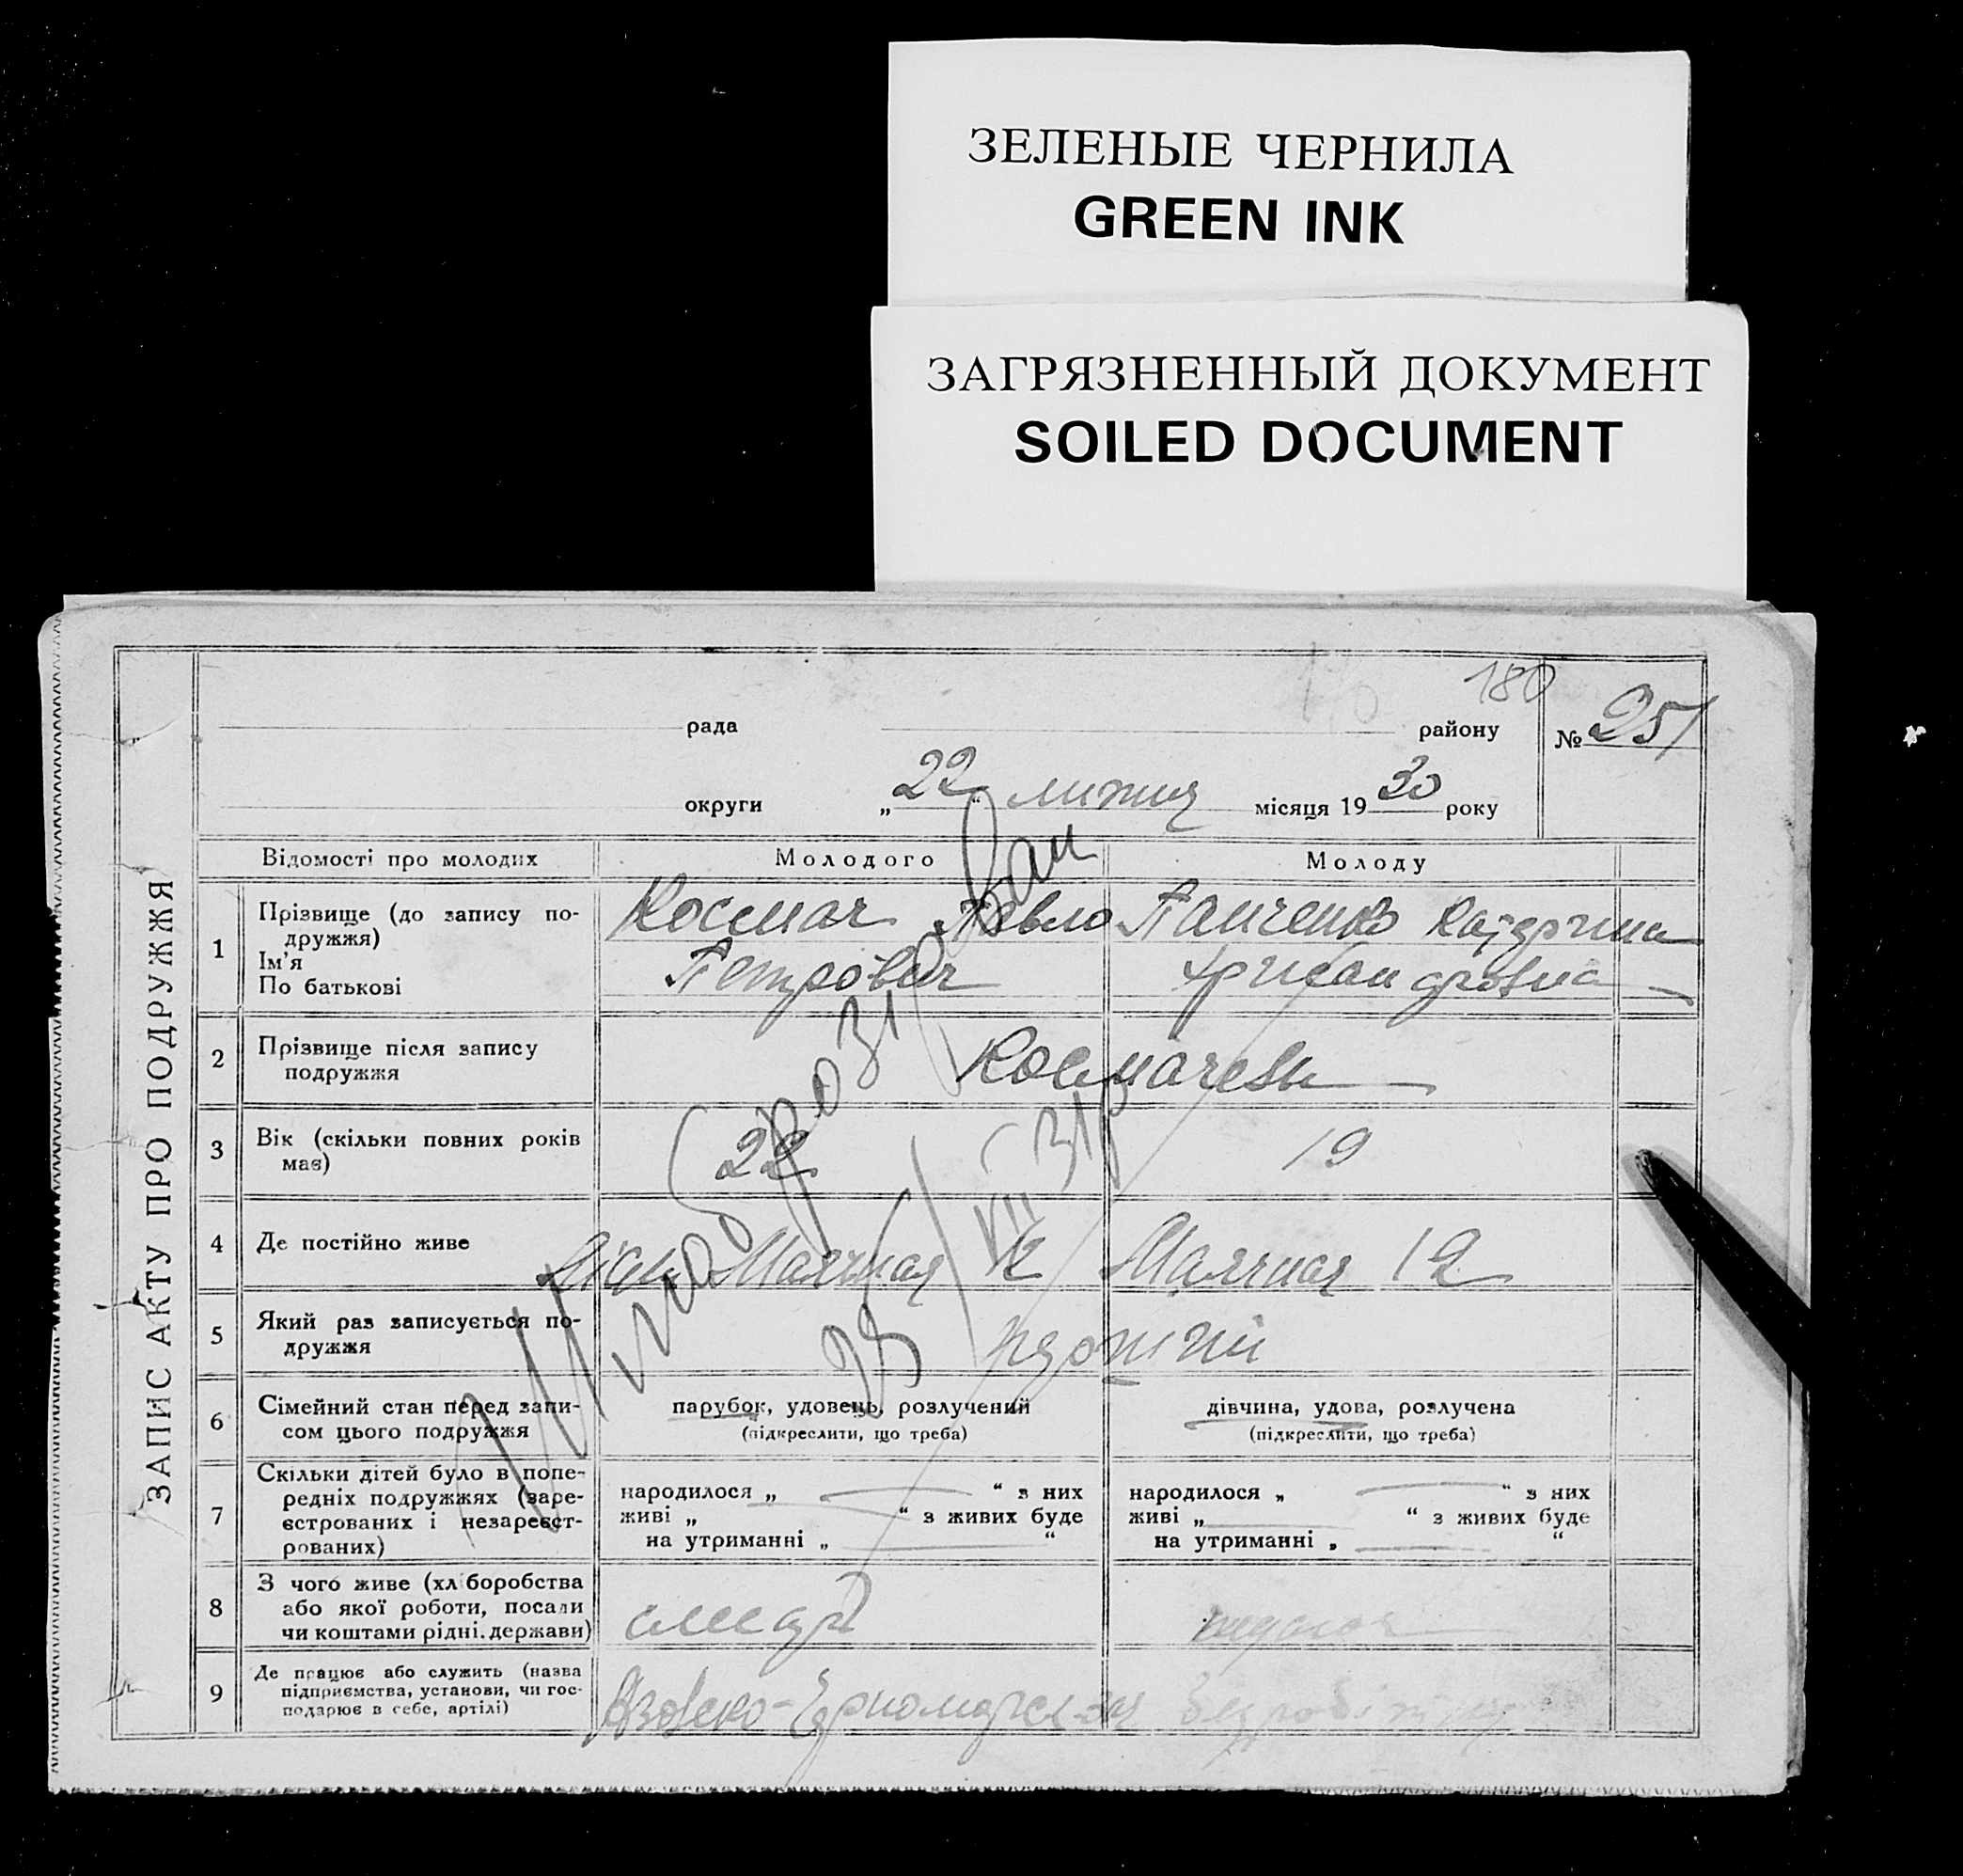 ЗЕЛЕНЫЕ ЧЕРНИЛА
GREEN INK
ЗАГРЯЗНЕННЫЙ ДОКУМЕНТ
SOILED DOCUMENT
ЗАПИС АКТУ ПРО ПОДРУЖЖЯ
180
рада району № 251
округи „22“ липня місяця 1930 року
Відомості про молодих Молодого Молоду
1 Прізвище (до запису по-
дружжя)
Ім'я
По батькові
Космач Павло
Петрович
Панченко Катерина
Хрисандровна
2 Прізвище після запису
подружжя
Космачеви
3 Вік (скільки повних років
має)
22 19
4 Де постійно живе
Маячная 12 Маячная 12
5 Який раз записується по-
дружжя
6 Сімейний стан перед запи-
сом цього подружжя
парубок, удовець, розлучений
(підкреслити, що треба)
дівчина, удова, розлучена
(підкреслити, що треба)
7 Скільки дітей було в попе-
редніх подружжях (заре-
єстрованих і незареєст-
рованих)
народилося „ “ з них
живі „ “ з живих буде
на утриманні „ “
народилося „ “ з них
живі „ “ з живих буде
на утриманні „ “
8 З чого живе (хліборобства
або якої роботи, посади
чи коштами рідні.держави)
9 Де працює або служить (назва
підприємства, установи, чи гос-
подарює в себе, артілі)
Азовско-Черноморская безробітня
Шлюб розірван
25/VII 31р